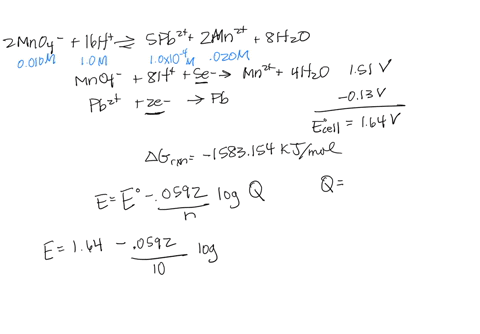 2MnO₄⁻ + 16H⁺ ⇌ 5Pb²⁺ + 2Mn²⁺ + 8H₂O
0.010M 1.0M 1.0x10⁻⁴M .020M
MnO₄⁻ + 8H⁺ + 5e⁻ → Mn²⁺ + 4H₂O 1.51 V
Pb²⁺ + 2e⁻ → Pb -0.13 V
E°cell = 1.64 V
ΔGrxn = -1583.154 KJ/mol
E = E° - .0592/n log Q Q =
E = 1.64 - .0592/10 log